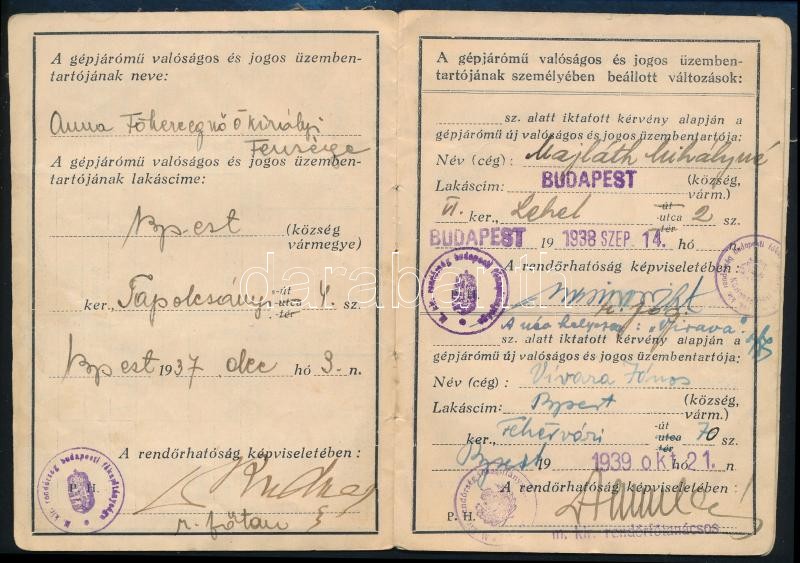 A gépjárómű valóságos és jogos üzemben-
tartójának neve:
Anna Főhercegnő ő királyi
Fensége
A gépjárómű valóságos és jogos üzemben-
tartójának lakáscime:
Bpest (község
vármegye)
ker., Tapolcsányi -út
utca 4. sz.
-tér
Bpest 1937 dec hó 3-n.
A rendőrhatóság képviseletében:
P. H.
M. kir. rendőrség budapesti főkapitánysága
r. főtan
A gépjárómű valóságos és jogos üzemben-
tartójának személyében beállott változások:
sz. alatt iktatott kérvény alapján a
gépjárómű új valóságos és jogos üzembentartója:
Név (cég): Majláth Mihályné
Lakáscim: BUDAPEST (község,
várm.)
VI. ker., Lehel -út
utca 2 sz.
-tér
BUDAPEST 19 1938 SZEP. 14. hó n.
A rendőrhatóság képviseletében:
P. H.
M. kir. rendőrség budapesti főkapitánysága
A név helyesen: „Vivava".
sz. alatt iktatott kérvény alapján a
gépjárómű új valóságos és jogos üzembentartója:
Név (cég): Vivara János
Lakáscim: Bpest (község,
várm.)
ker., Fehérvári -út
utca 70 sz.
-tér
Bpest 19 1939 okt. 21. hó n.
A rendőrhatóság képviseletében:
P. H.
m. kir. rendőrfőtanácsos
darabanth